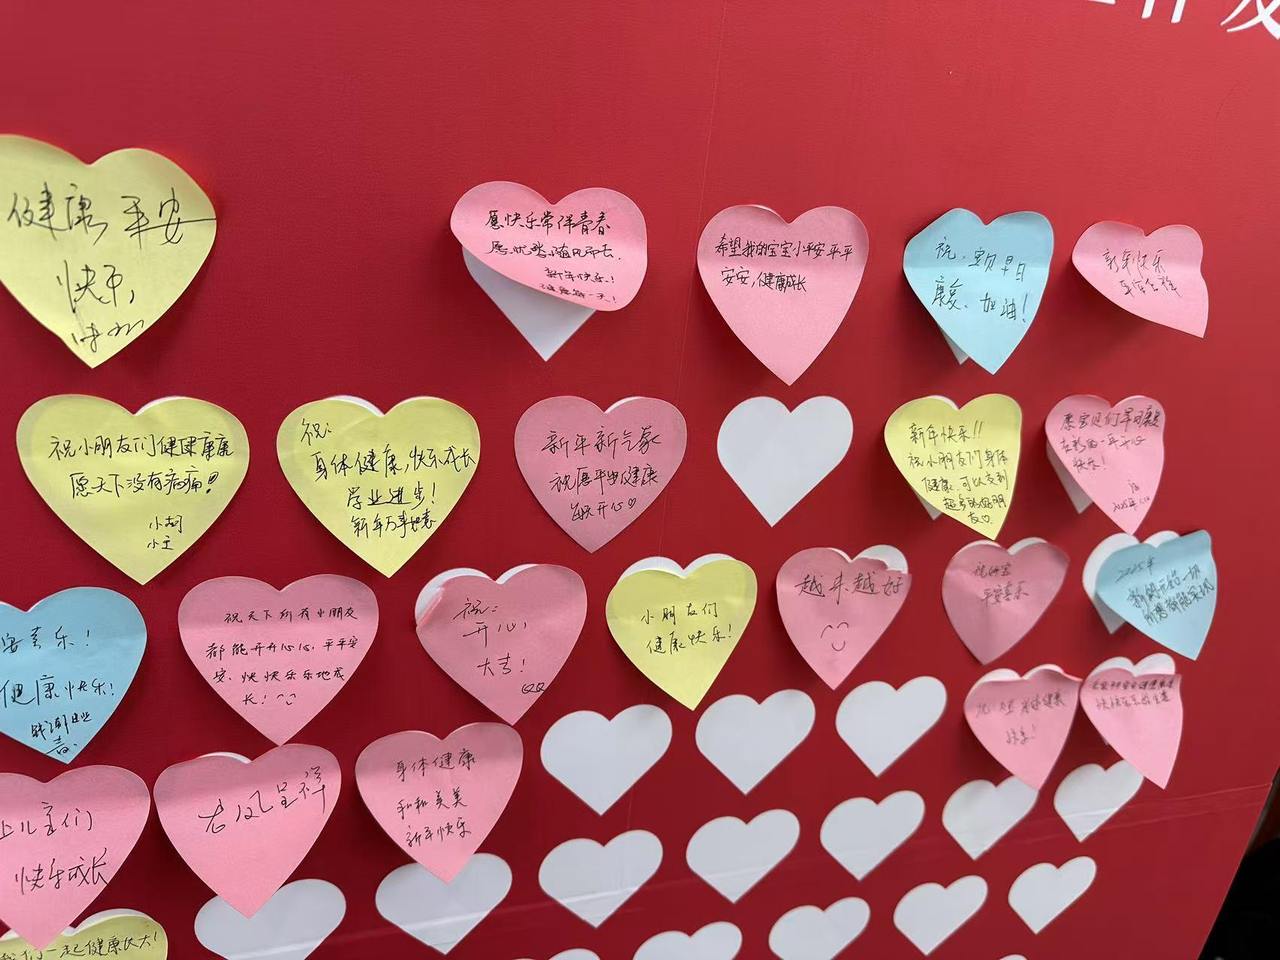 健康平安
快乐,
愿快乐常伴青春
愿忧愁随风而去.
新年快乐!
希望我的宝宝小平安平平
安安,健康成长
祝:宝贝早日
康复、加油!
新年快乐
平安吉祥
祝小朋友们健健康康
愿天下没有病痛!
小胡
小王
祝:
身体健康,快乐成长
学业进步!
新年万事如意
新年新气象
祝愿平安健康
每天开心♡
新年快乐!!
祝小朋友们身体
健康,可以交到
超多的好朋
友♡
愿宝贝们早日康复
在新的一年开心
快乐!
安喜乐!
健康快乐!
祝天下所有小朋友
都能开开心心,平平安
安、快快乐乐地成
长!
祝:
开心,
大吉!
小朋友们
健康快乐!
越来越好
平安喜乐
2025年
新的一年的一切
所愿都能实现
祝 身体健康
快乐!
儿童们
快乐成长
龙凤呈祥
身体健康
和和美美
新年快乐
一起健康长大!